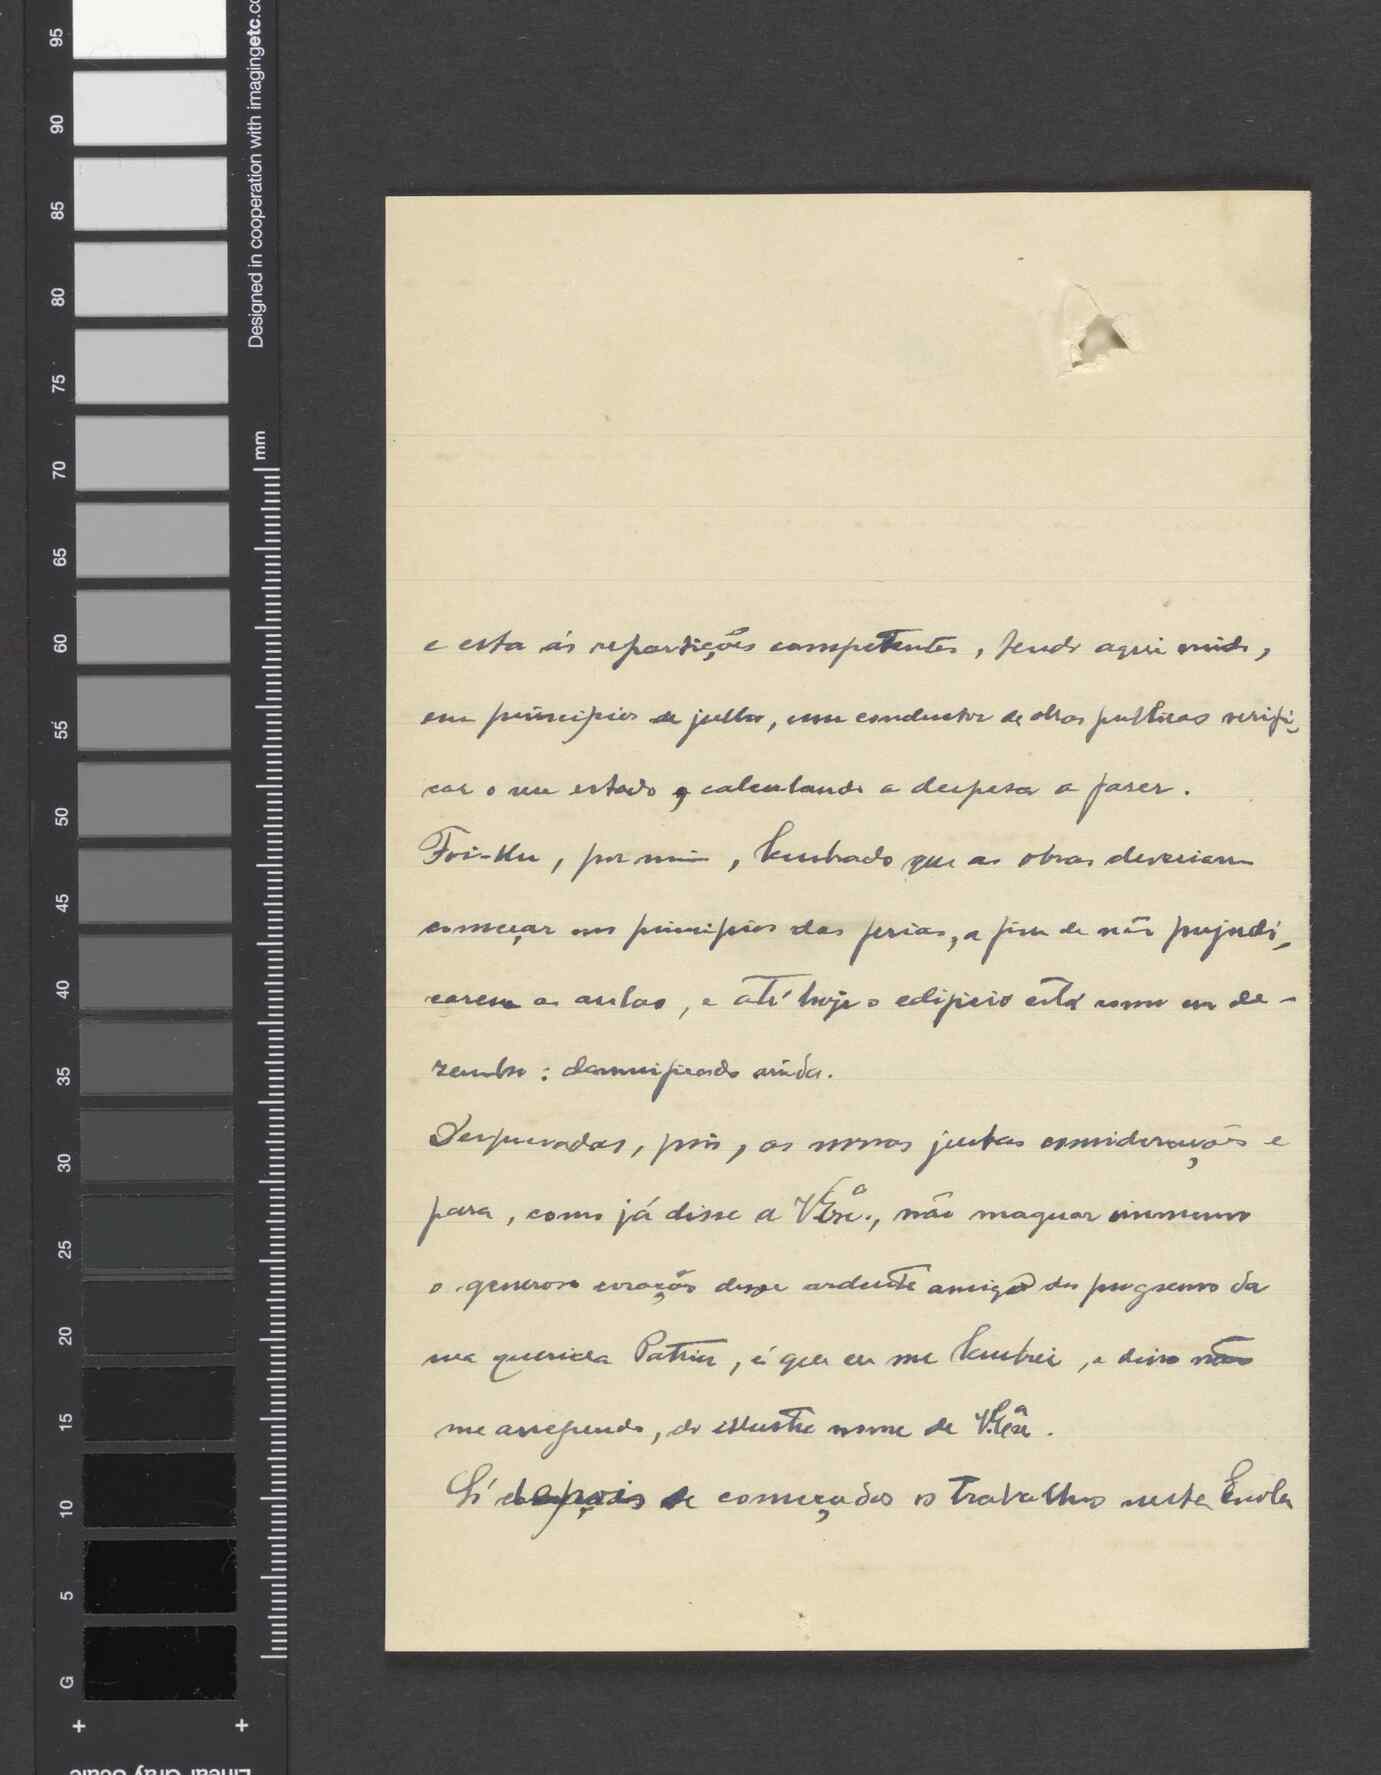 95
90
85
80
75
70
65
60
55
50
45
40
35
30
25
20
15
10
5
G
Designed in cooperation with imagingetc.co
mm
e esta ás repartições competentes, tendo aqui vindo,
em principios de julho, um conductor de obras publicas verifi-
car o seu estado e calculando a despesa a faser.
Foi-lhe, por mim, lembrado que as obras deveriam
começar nos principios das ferias, a fim de não prejudi-
carem as aulas, e até hoje o edificio está como em de-
zembro: damnificado ainda.
Desprezadas, pois, as nossas justas considerações e
para, como já disse a V. Exª., não maguar immenso
o generoso coração desse ardente amigo do progresso da
sua querida Patria, é que eu me lembrei, e disso não
me arrependo, do illustre nome de V. Exª.
Só depois de começados os trabalhos nesta Escola